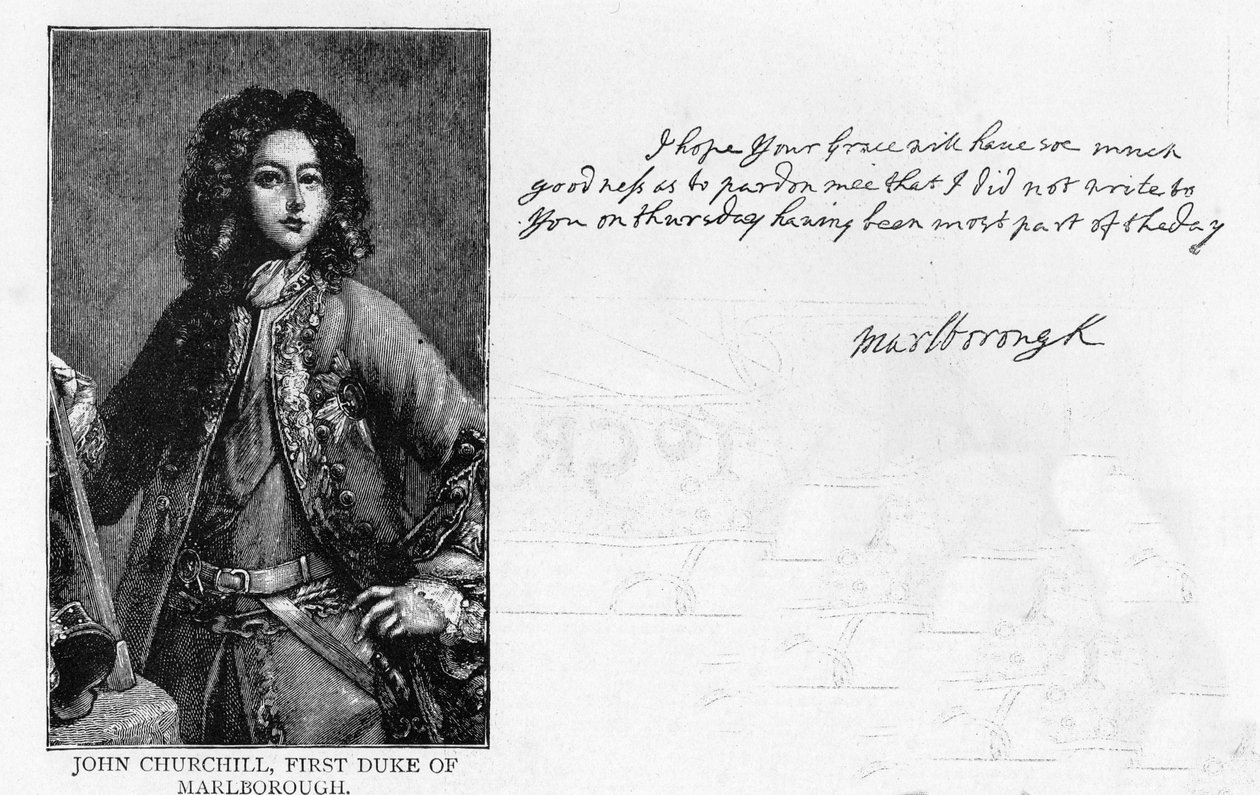 I hope Your Grace will have soe much
goodness as to pardon mee that I did not write to
You on thursday having been most part of the day
Marlborough
JOHN CHURCHILL, FIRST DUKE OF
MARLBOROUGH.